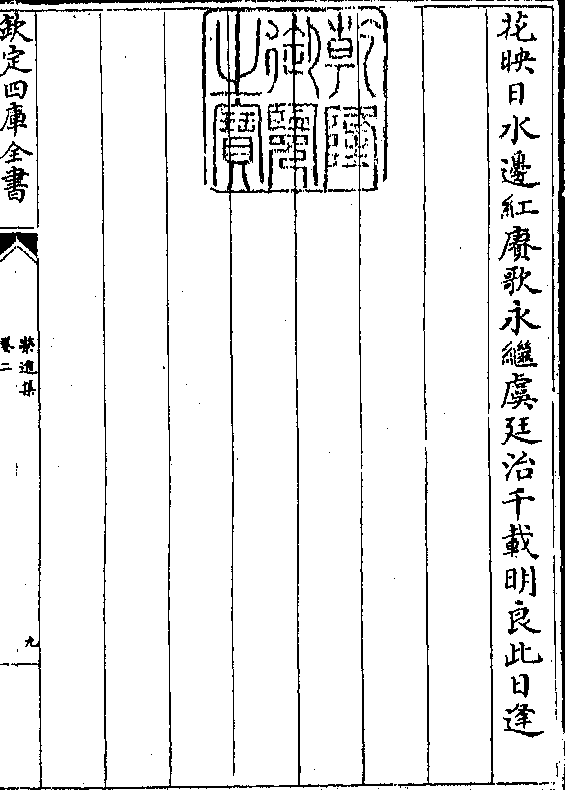 花映日水邊紅賡歌永繼虞廷治千載明良此日逢
乾隆御覽之寶
欽定四庫全書
榮進集
卷二
九